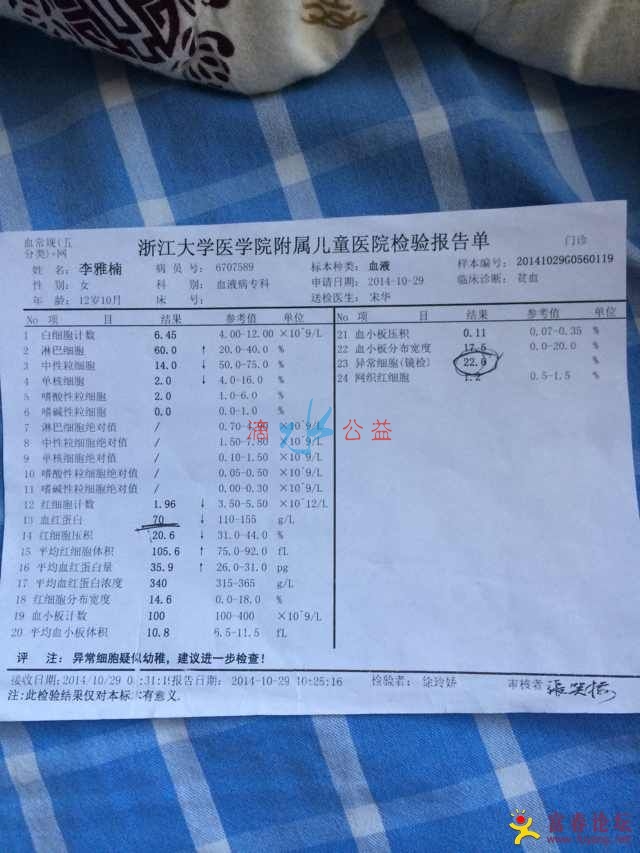 血常规(五
分类)+网
浙江大学医学院附属儿童医院检验报告单
门诊
姓 名: 李雅楠 病 员 号: 6707589 标本种类: 血液 样本编号: 20141029G0560119
性 别: 女 科 别: 血液病专科 申请日期: 2014-10-29 临床诊断: 贫血
年 龄: 12岁10月 床 号: 送检医生: 宋华
No 项 目 结果 参考值 单位
1 白细胞计数 6.45 4.00-12.00 ×10^9/L
2 淋巴细胞 60.0 ↑ 20.0-40.0 %
3 中性粒细胞 14.0 ↓ 50.0-75.0 %
4 单核细胞 2.0 ↓ 4.0-16.0 %
5 嗜酸性粒细胞 2.0 1.0-6.0 %
6 嗜碱性粒细胞 0.0 0.0-1.0 %
7 淋巴细胞绝对值 / ×10^9/L
8 中性粒细胞绝对值 / 1.50-7.80 ×10^9/L
9 单核细胞绝对值 / 0.10-1.50 ×10^9/L
10 嗜酸性粒细胞绝对值 / 0.05-0.50 ×10^9/L
11 嗜碱性粒细胞绝对值 / 0.00-0.30 ×10^9/L
12 红细胞计数 1.96 ↓ 3.50-5.50 ×10^12/L
13 血红蛋白 70 ↓ 110-155 g/L
14 红细胞压积 20.6 ↓ 31.0-44.0 %
15 平均红细胞体积 105.6 ↑ 75.0-92.0 fL
16 平均血红蛋白量 35.9 ↑ 26.0-31.0 pg
17 平均血红蛋白浓度 340 315-365 g/L
18 红细胞分布宽度 14.6 0.0-18.0 %
19 血小板计数 100 100-400 ×10^9/L
20 平均血小板体积 10.8 6.5-11.5 fL
No 项 目 结果 参考值 单位
21 血小板压积 0.11 0.07-0.35 %
22 血小板分布宽度 17.5 0.0-20.0 %
23 异常细胞(镜检) 22.0 %
24 网织红细胞 1.2 0.5-1.5 %
滴水公益
评 注: 异常细胞疑似幼稚，建议进一步检查!
接收日期:2014/10/29 :31:19 报告日期: 2014-10-29 10:25:16 检验者: 徐玲娇 审核者
注:此检验结果仅对本标本有意义.
富春论坛